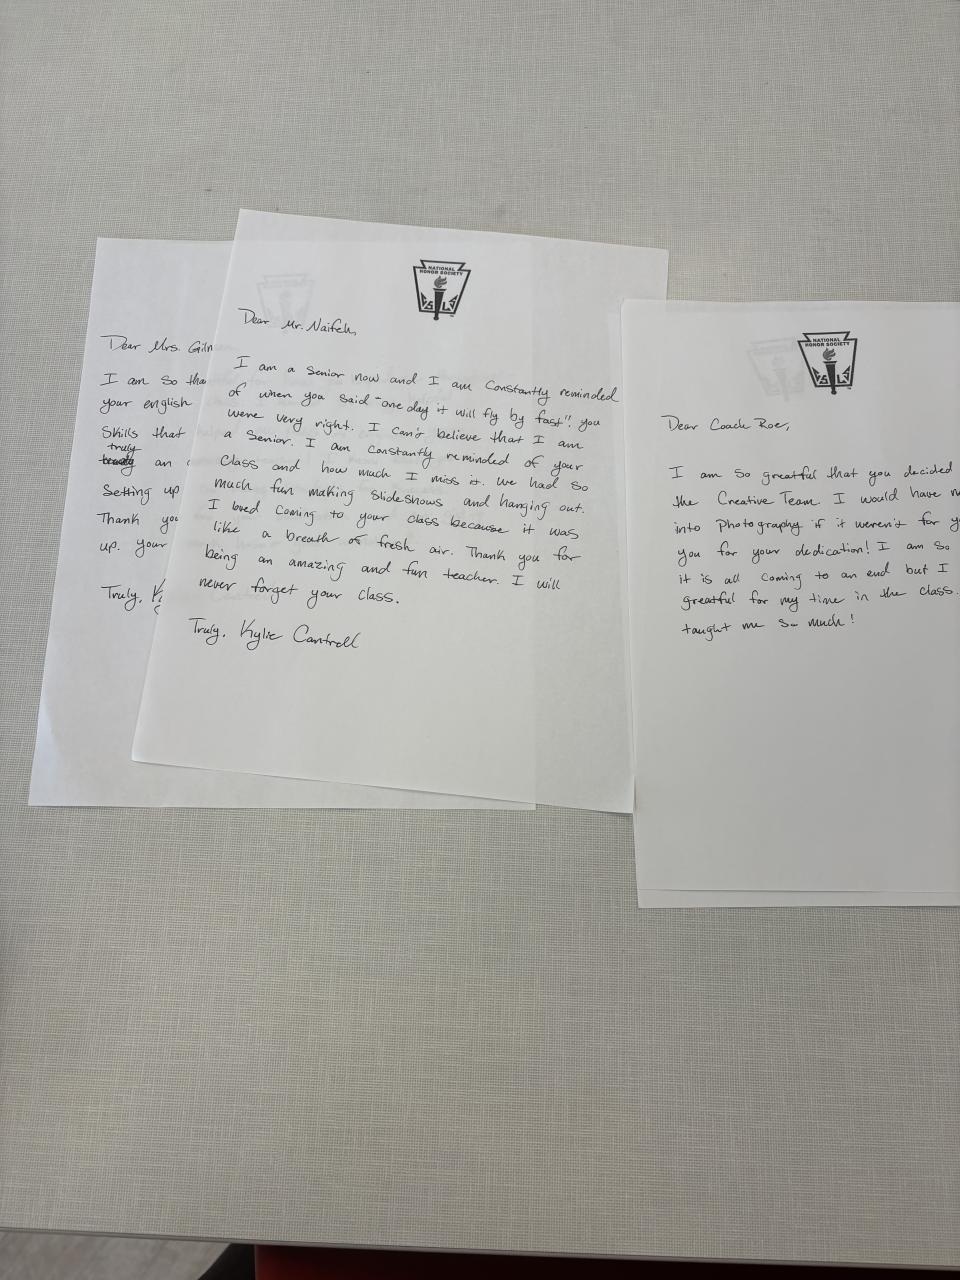 Dear Mrs. Giln
I am so tha
your english
Skills that
truly
an
Setting up
Thank you
up. your
Truly,
NATIONAL
HONOR SOCIETY
Dear Mr. Naifeh,
I am a Senior now and I am Constantly reminded
of when you said "one day it will fly by fast". you
were very right. I can't believe that I am
a Senior. I am Constantly reminded of your
Class and how much I miss it. We had so
much fun making slideshows and hanging out.
I loved coming to your class because it was
like a breath of fresh air. Thank you for
being an amazing and fun teacher. I will
never forget your class.
Truly, Kylie Cantrell
NATIONAL
HONOR SOCIETY
Dear Coach Roe,
I am so greatful that you decided
the Creative Team. I would have n
into Photography if it weren't for y
you for your dedication! I am so
it is all coming to an end but I
greatful for my time in the class.
taught me so much!